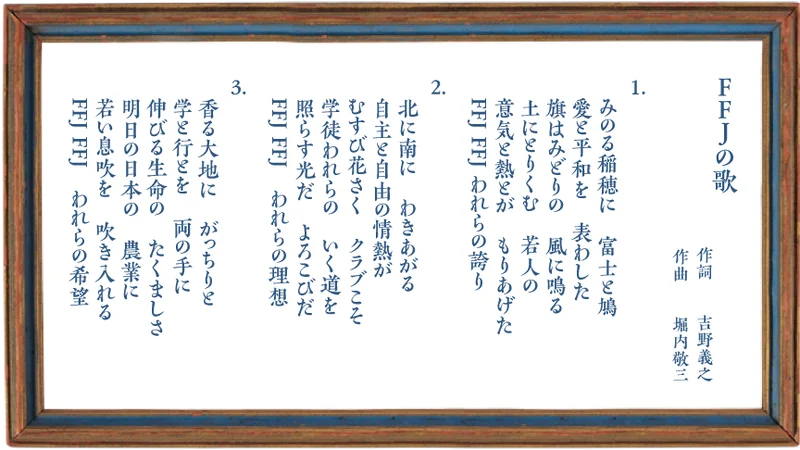 FFJの歌
作詞　吉野義之
作曲　堀内敬三
1.
みのる稲穂に　富士と鳩
愛と平和を　表わした
旗はみどりの　風に鳴る
土にとりくむ　若人の
意気と熱とが　もりあげた
FFJ FFJ　われらの誇り
2.
北に南に　わきあがる
自主と自由の情熱が
むすび花さく　クラブこそ
学徒われらの　いく道を
照らす光だ　よろこびだ
FFJ FFJ　われらの理想
3.
香る大地に　がっちりと
学と行とを　両の手に
伸びる生命の　たくましさ
明日の日本の　農業に
若い息吹を　吹き入れる
FFJ FFJ　われらの希望